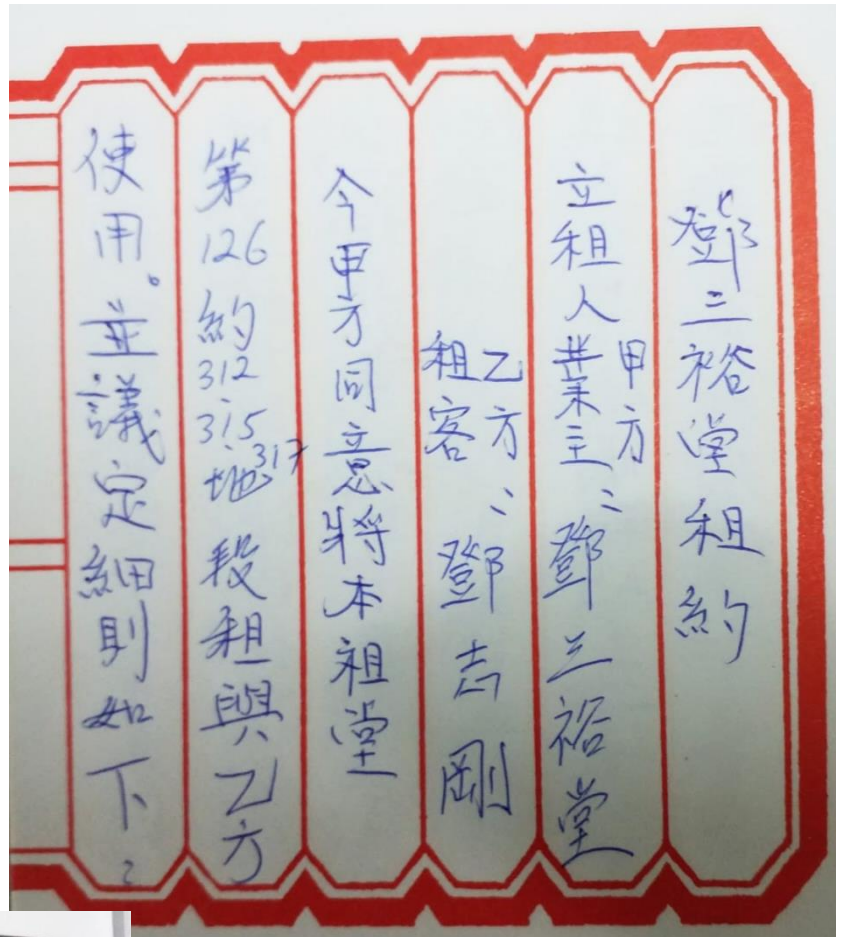 鄧三裕堂租約
立租人業主甲方：鄧三裕堂
租客乙方：鄧志剛
今甲方同意將本祖堂
第126約312 315 317地段租與乙方
使用。並議定細則如下：